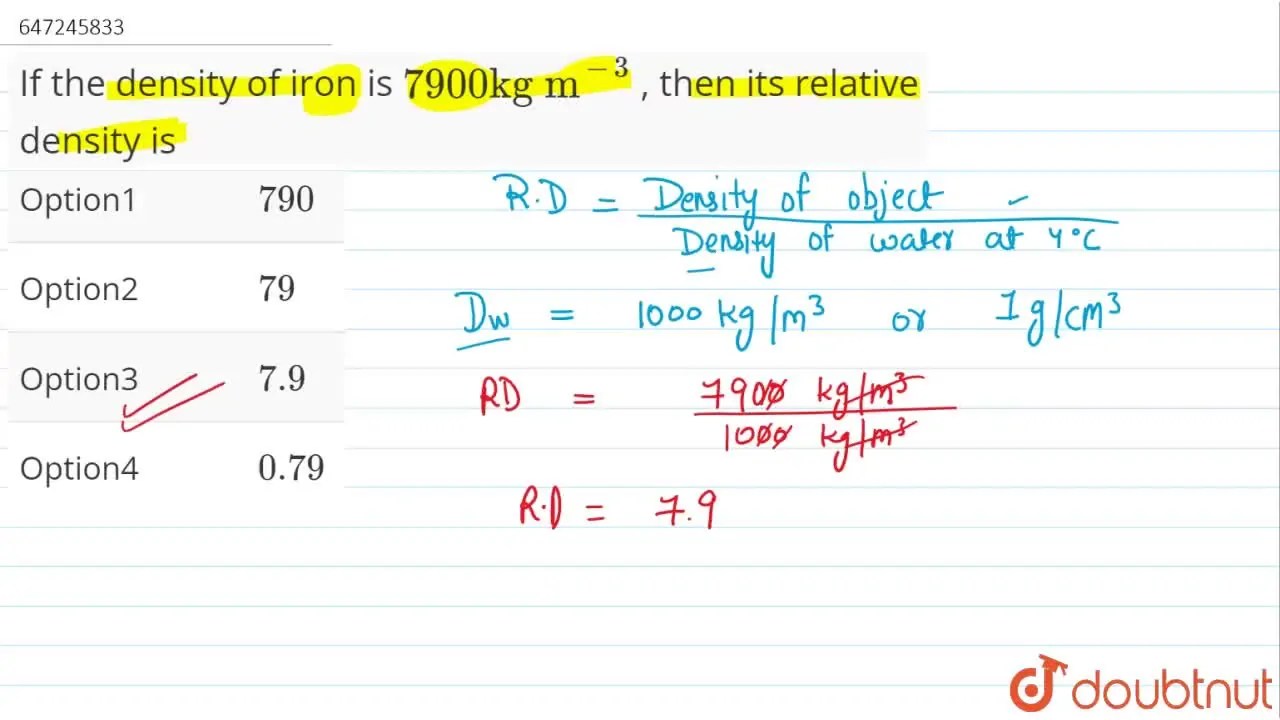 647245833
If the density of iron is 7900kg m⁻³ , then its relative
density is
Option1 790
Option2 79
Option3 7.9
Option4 0.79
R.D = Density of object
Density of water at 4°C
Dw = 1000 kg/m³ or 1 g/cm³
RD = 7900 kg/m³
1000 kg/m³
R.D = 7.9
doubtnut